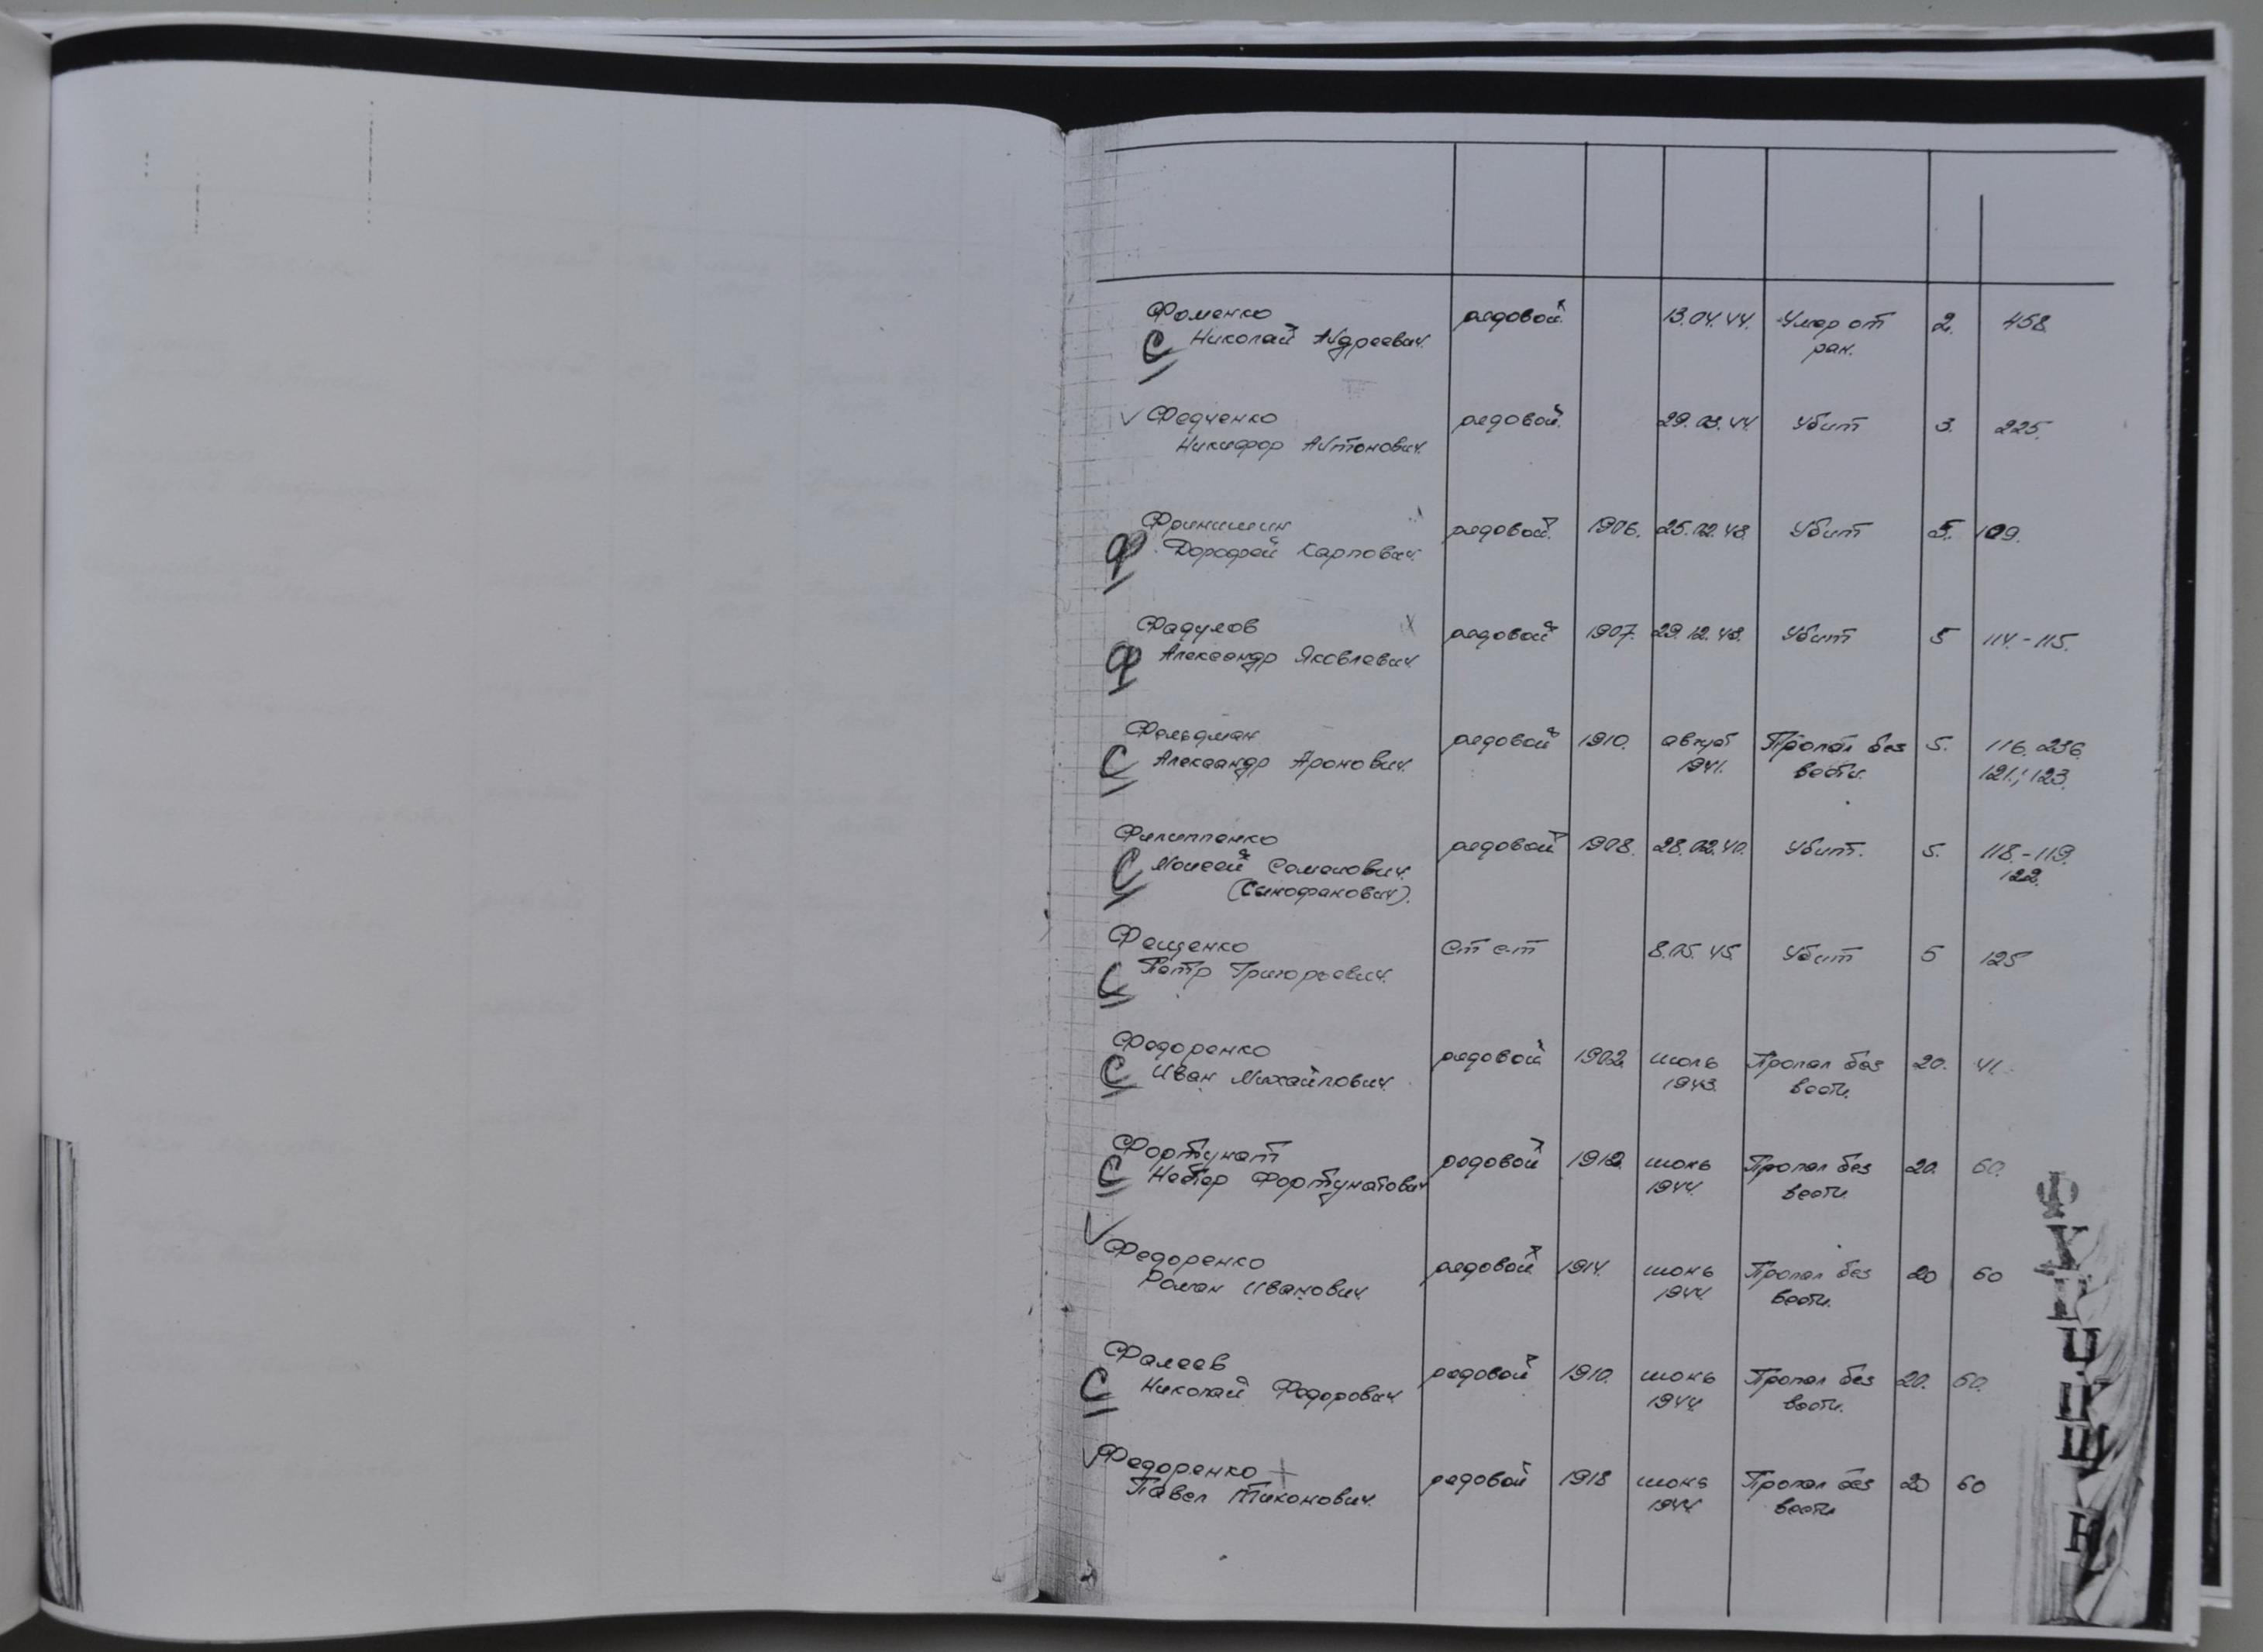 Фоменко рядовой 13.04.44. Умер от 2. 458
С Николай Андреевич. ран.
Федченко рядовой. 29.03.44. Убит 3. 225.
Никифор Антонович.
рядовой. 1906. 25.02.43. Убит 5. 109.
Ф Дорофей Карпович.
Фадулов рядовой 1907. 29.12.43. Убит 5 114.-115.
Ф Александр Яковлевич
Фельдман рядовой 1910. август Пропал без 5. 116. 236.
С Александр Аронович. 1941. вести. 121., 123.
Филиппенко рядовой 1908. 28.02.40. Убит. 5. 118.-119.
С Моисей Семенович. 122.
(Синофанович).
Фещенко ст с-т 8.05.45. Убит 5 125
С Петр Григорьевич.
Федоренко рядовой 1902. июль Пропал без 20. 41.
С Иван Михайлович. 1943. вести.
Фортунат рядовой 1912. июнь Пропал без 20. 60.
С Нестер Фортунатович 1944. вести.
Федоренко рядовой 1914. июнь Пропал без 20 60
Роман Иванович. 1944. вести.
Фалеев рядовой 1910. июнь Пропал без 20. 60.
С Николай Федорович 1944. вести.
Федоренко рядовой 1918 июнь Пропал без 20 60
Павел Тихонович. 1944. вести
Ф
Х
Ц
Ч
Ш
Щ
Н